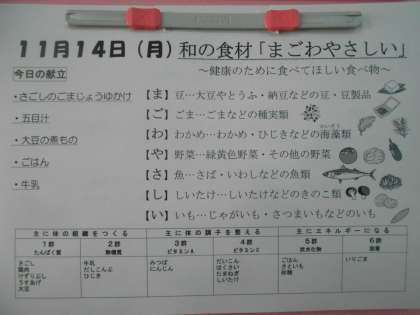 11月14日（月）和の食材「まごわやさしい」
～健康のために食べてほしい食べ物～
今日の献立
・さごしのごまじょうゆかけ
・五目汁
・大豆の煮もの
・ごはん
・牛乳
【ま】豆…大豆やとうふ・納豆などの豆・豆製品
【ご】ごま…ごまなどの種実類
【わ】わかめ…わかめ・ひじきなどの海藻類
【や】野菜…緑黄色野菜・その他の野菜
【さ】魚…さば・いわしなどの魚類
【し】しいたけ…しいたけなどのきのこ類
【い】いも…じゃがいも・さつまいもなどのいも
主に体の組織をつくる 主に体の調子を整える 主にエネルギーになる
1群 2群 3群 4群 5群 6群
たんぱく質 無機質 ビタミンA ビタミンC 炭水化物 脂質
さごし 牛乳 みつば だいこん ごはん いりごま
鶏肉 だしこんぶ にんじん はくさい さといも
けずりぶし ひじき たまねぎ 砂糖
うすあげ しいたけ
大豆